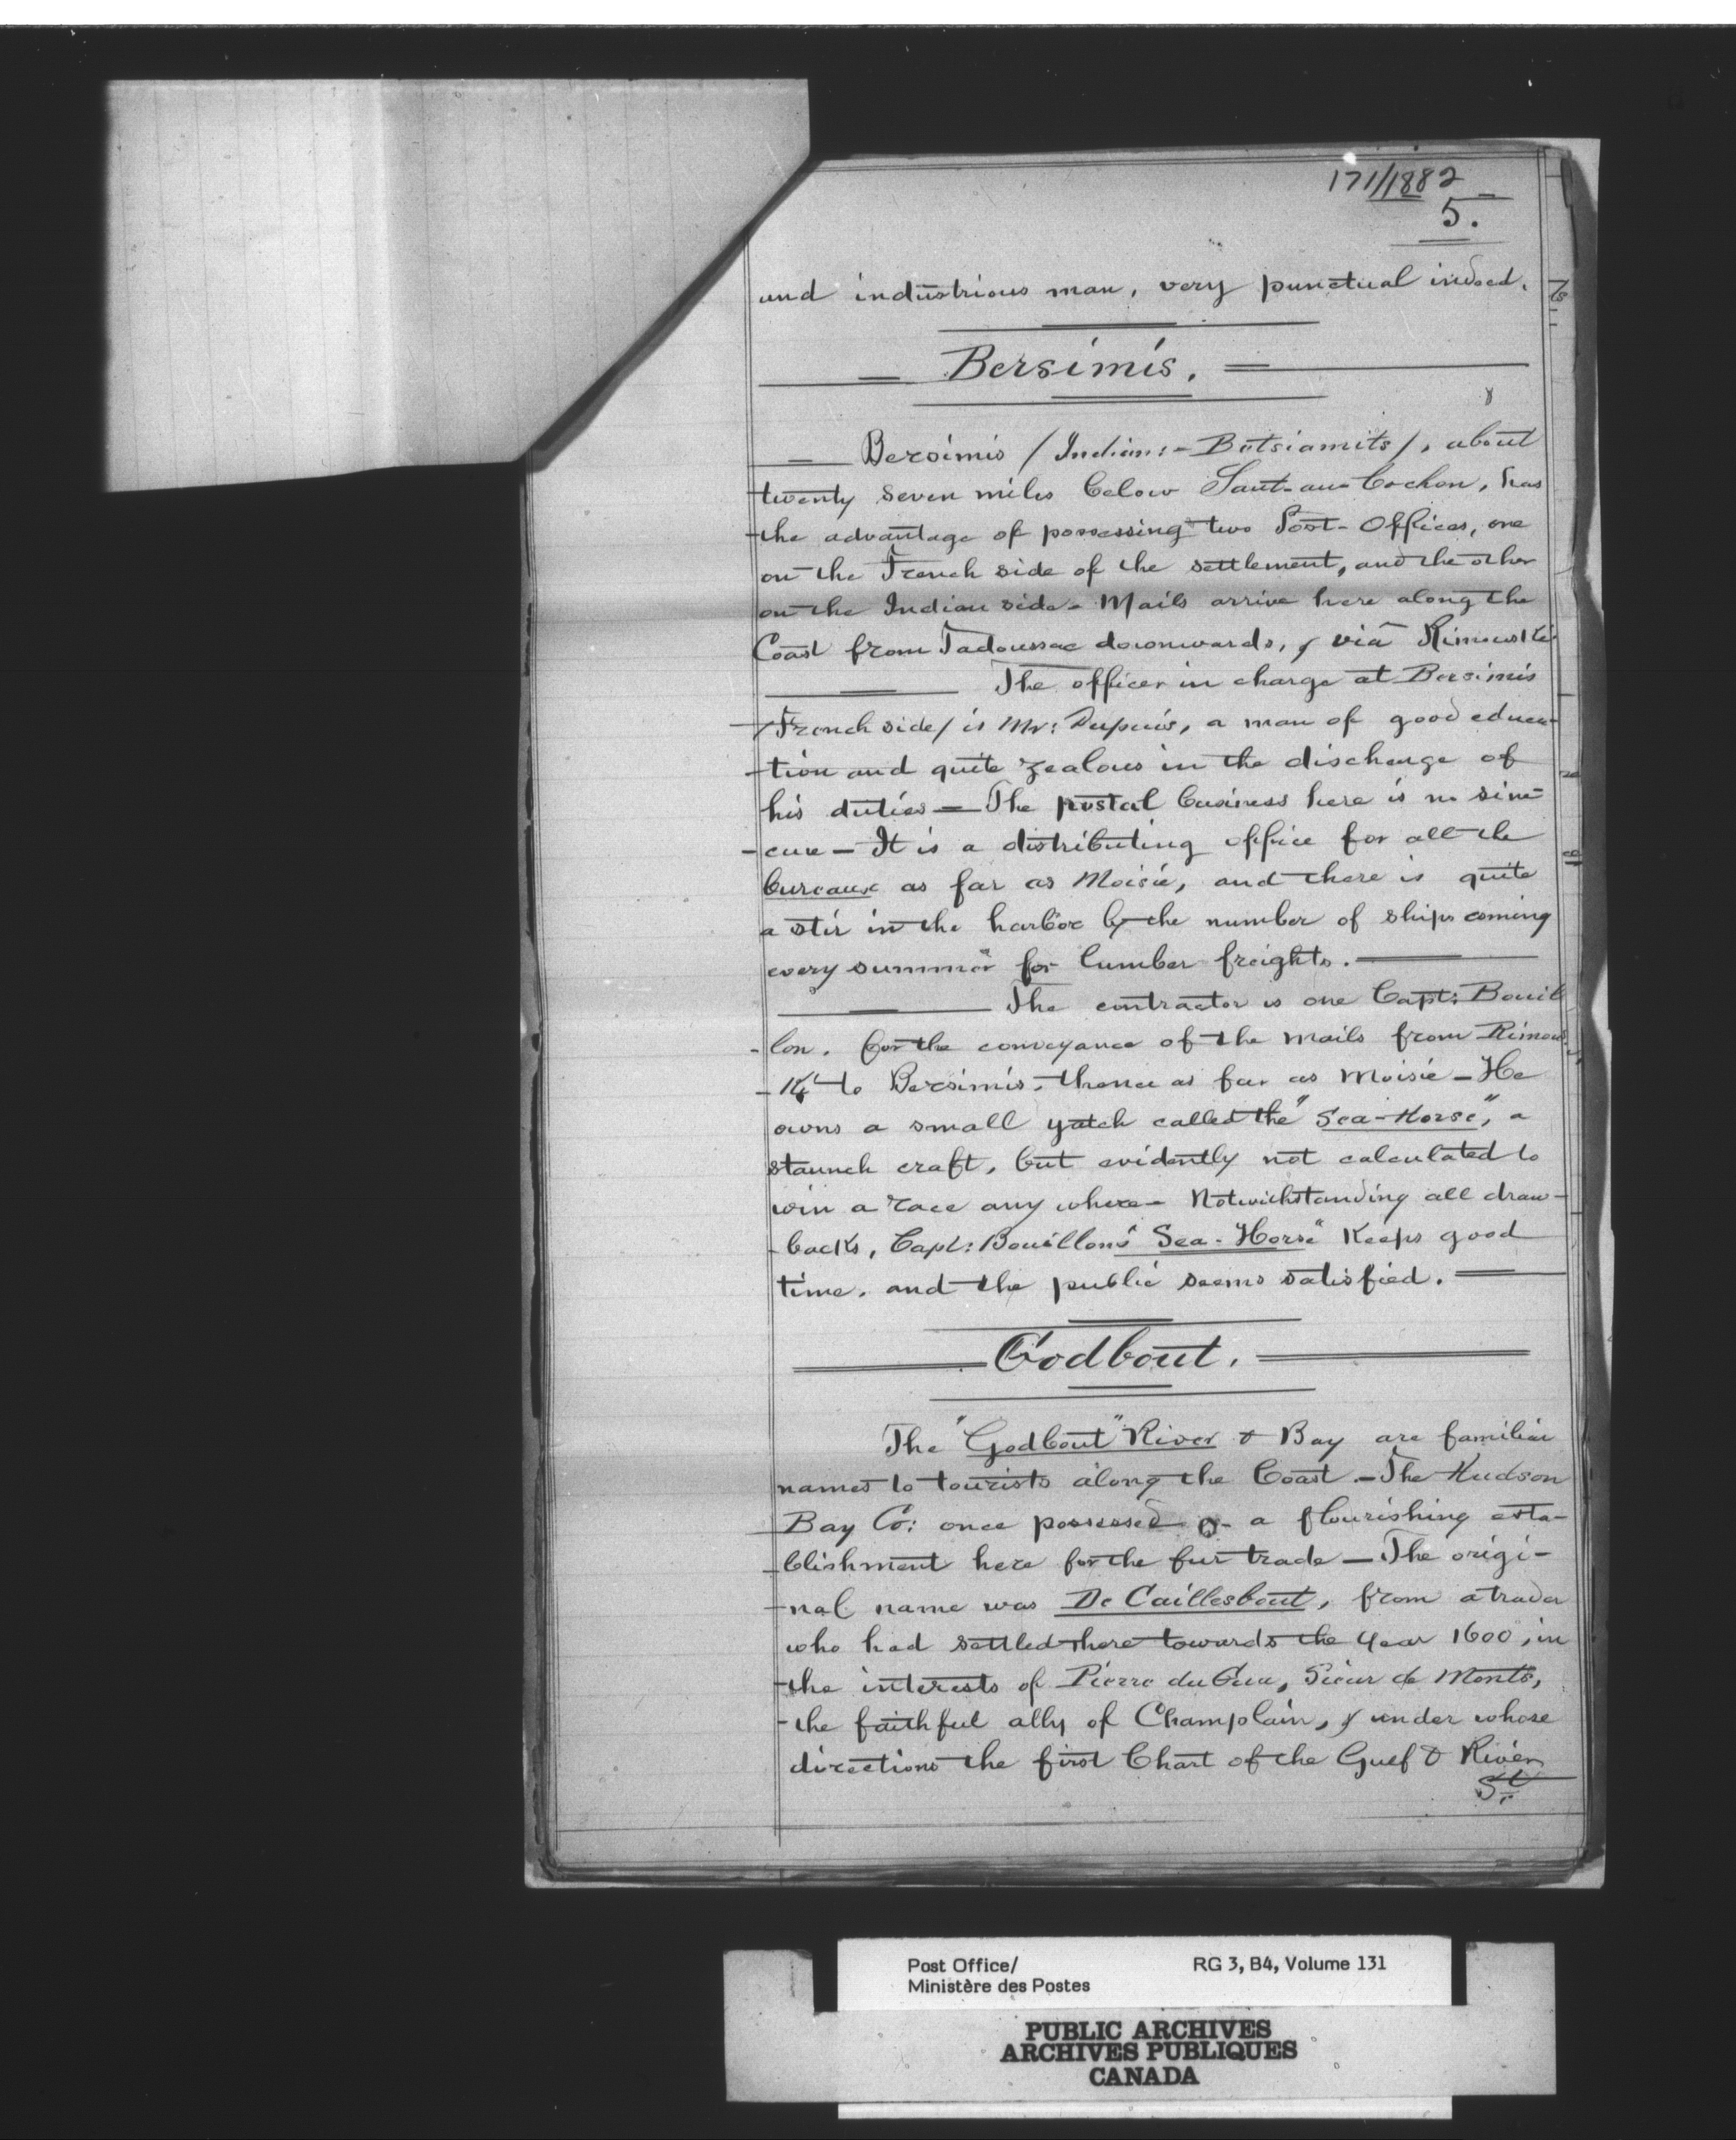 171/1882
5.
and industrious man, very punctual indeed.
Bersimis.
Bersimis / Indian:- Betsiamits /, about
twenty seven miles below Saut-au-Cochon, has
the advantage of possessing two Post-Offices, one
on the French side of the settlement, and the other
on the Indian side - Mails arrive here along the
Coast from Tadoussac downwards, & viâ Rimouski
The officer in charge at Bersimis
/French side/ is Mr: Dupuis, a man of good educa-
-tion and quite zealous in the discharge of
his duties - The postal business here is no sine-
-cure - It is a distributing office for all the
bureaux as far as Moisie, and there is quite
a stir in the harbor by the number of ships coming
every summer for lumber freights.
The contractor is one Capt: Bouil
-lon. for the conveyance of the mails from Rimous
-Ki to Bersimis, thence as far as Moisie - He
owns a small yatch called the "Sea-Horse", a
staunch craft, but evidently not calculated to
win a race any where - Notwithstanding all draw-
-backs, Capt: Bouillon's "Sea-Horse" Keeps good
time, and the public seems satisfied.
Godbout.
The "Godbout" River & Bay are familiar
names to tourists along the Coast - The Hudson
Bay Co: once possessed a flourishing esta-
-blishment here for the fur trade - The origi-
-nal name was De Caillesbout, from a trader
who had settled there towards the year 1600, in
the interests of Pierre du Gua, Sieur de Monts,
-the faithful ally of Champlain, & under whose
directions the first Chart of the Gulf & River
St
Post Office/
Ministère des Postes
RG 3, B4, Volume 131
PUBLIC ARCHIVES
ARCHIVES PUBLIQUES
CANADA